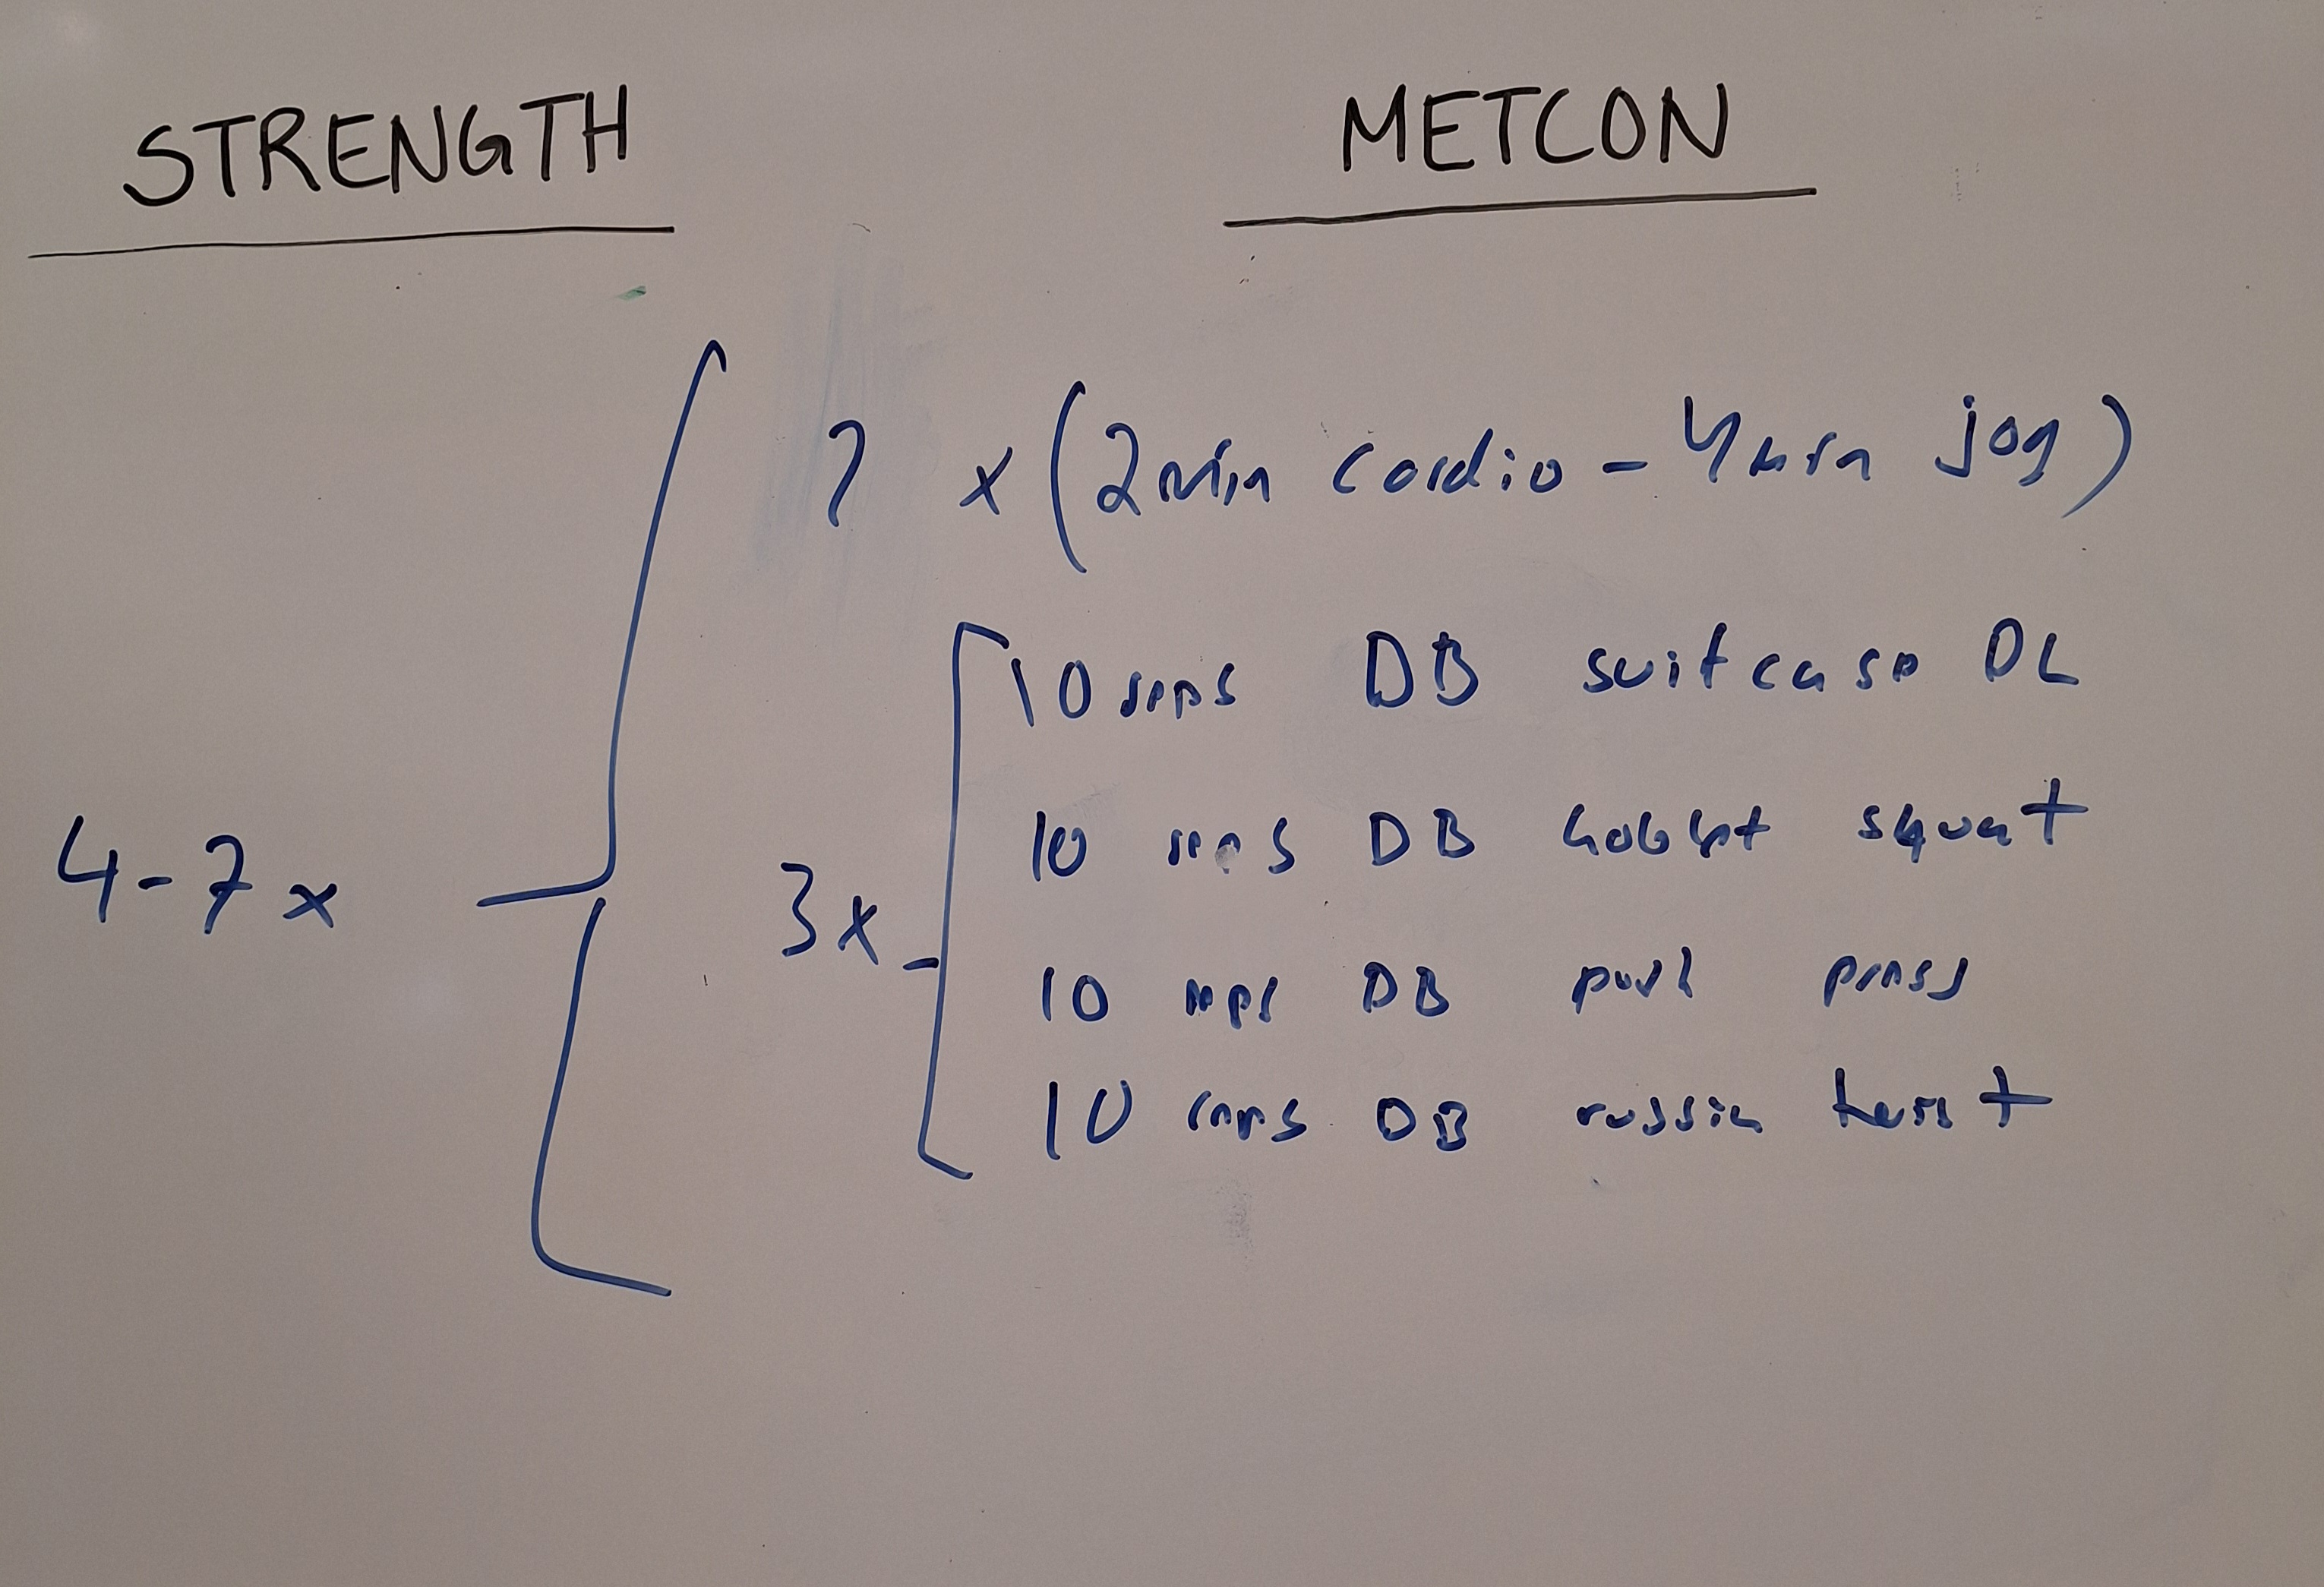 STRENGTH
METCON
? x (2min cardio - 4min jog)
4-7x
3x
10 reps DB suitcase DL
10 reps DB goblet squat
10 reps DB push press
10 reps DB russin twist